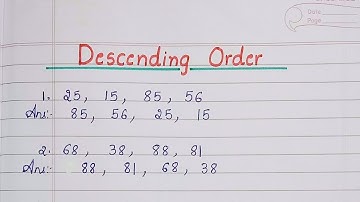 Date
Page
Descending Order
1. 25, 15, 85, 56
Ans:- 85, 56, 25, 15
2. 68, 38, 88, 81
Ans:- 88, 81, 68, 38